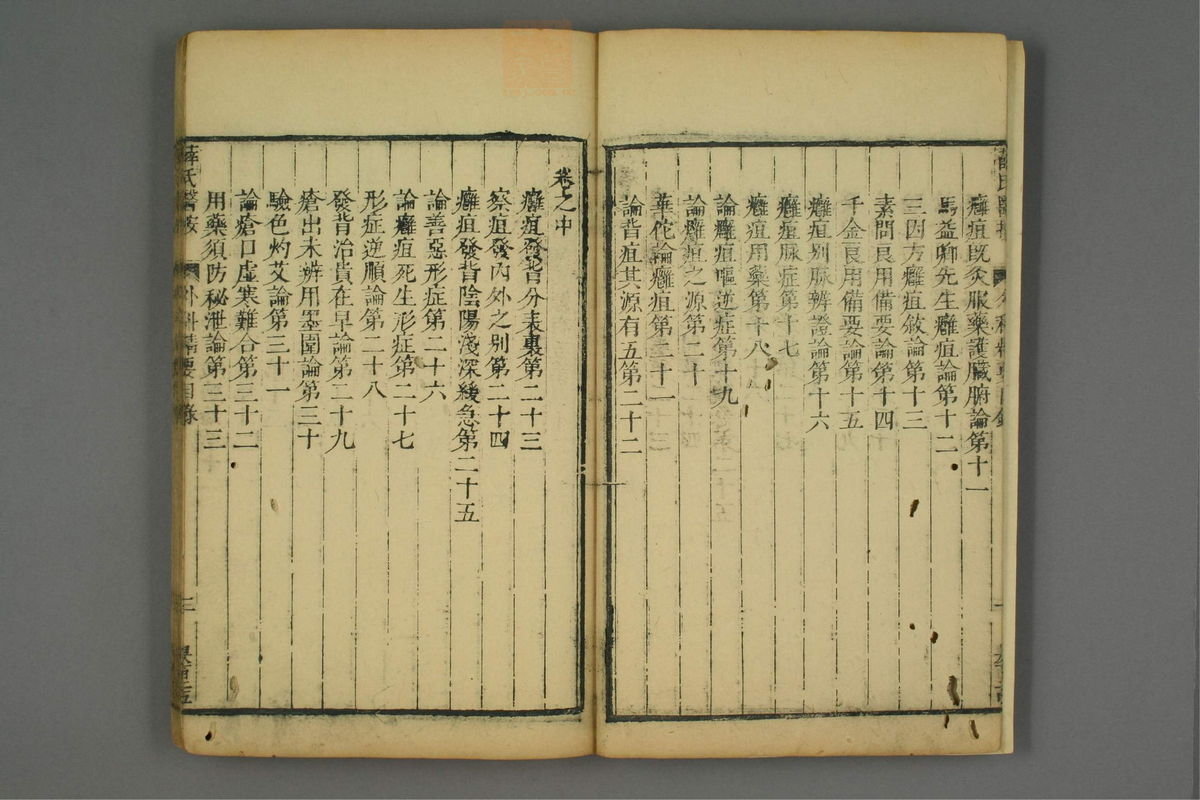 癰疽既灸服藥護臟腑論第十一
馬益卿先生癰疽論第十二
三因方癰疽敘論第十三
素問良用備要論第十四
千金良用備要論第十五
癰疽別脈辨證論第十六
癰疽脉症第十七
癰疽用藥第十八
論癰疽嘔逆症第十九
論癰疽之源第二十
華佗論癰疽第二十一
論背疽其源有五第二十二
卷之中
癰疽發背分表裏第二十三
察疽發內外之別第二十四
癰疽發背陰陽淺深緩急第二十五
論善惡形症第二十六
論癰疽死生形症第二十七
形症逆順論第二十八
發背治貴在早論第二十九
瘡出未辨用墨圍論第三十
驗色灼艾論第三十一
論瘡口虛寒難合第三十二
用藥須防秘泄論第三十三
薛氏醫按 外科精要目錄 二